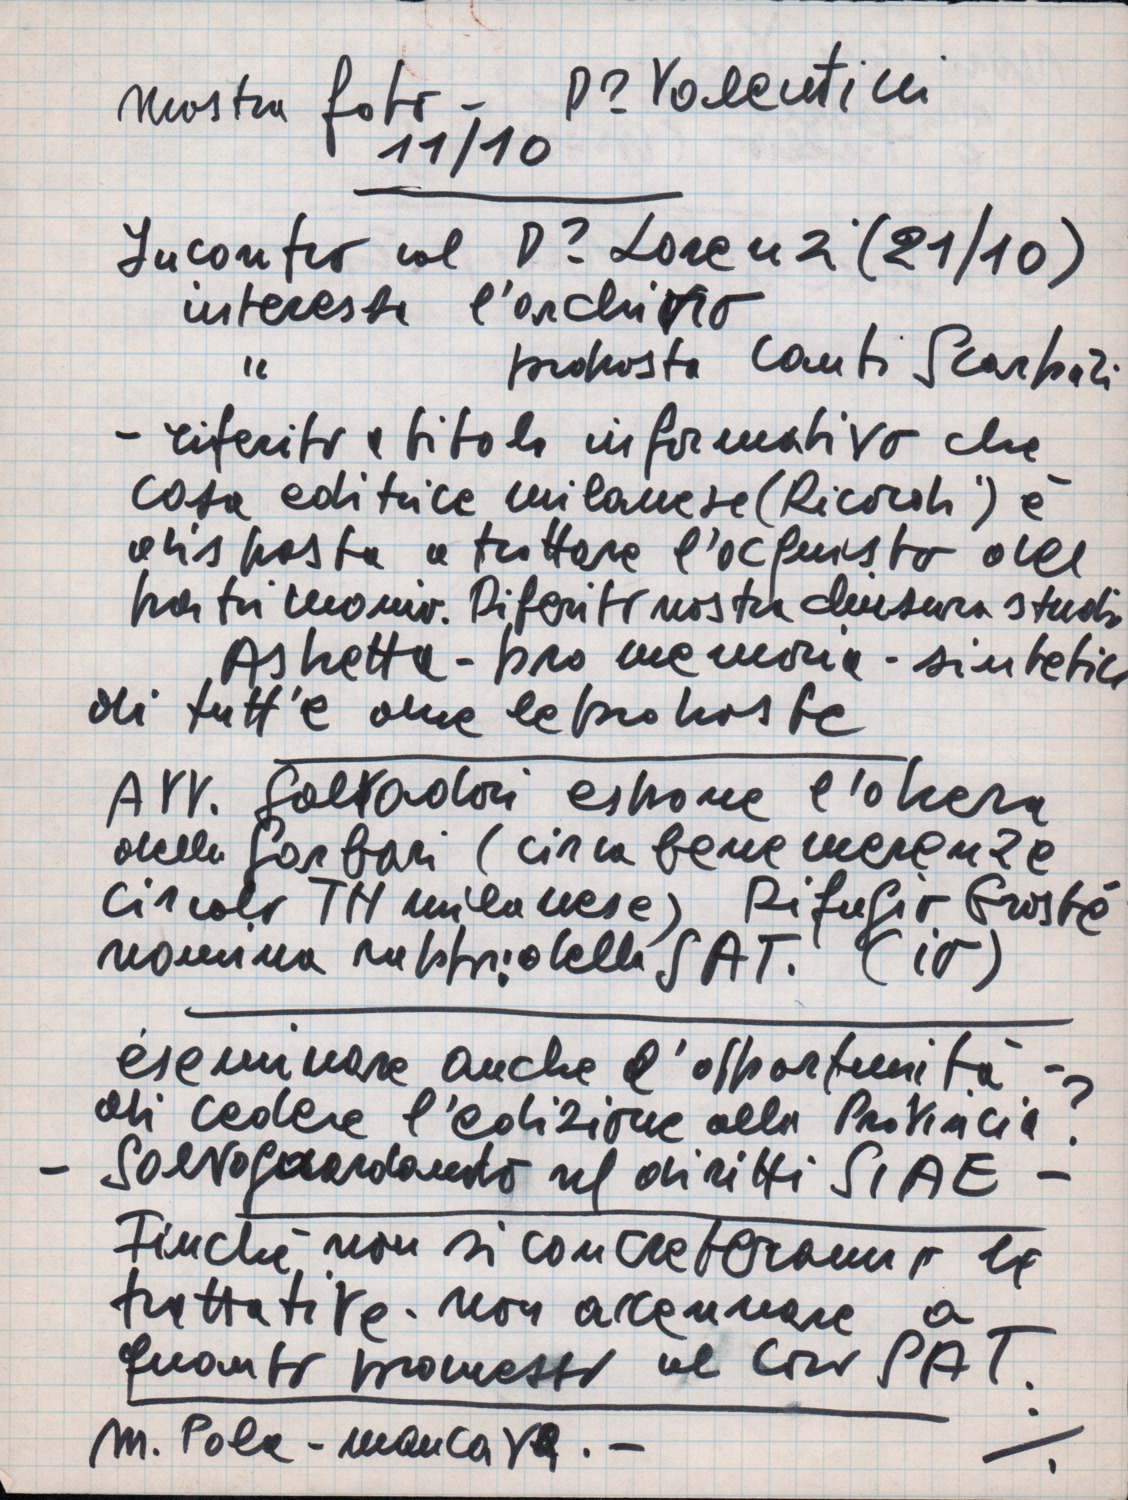 mostra foto - D? Valentini
11/10
Incontro col D? Lorenzi (21/10)
interessa l'archivio
" proposta Canti Scarpazi
- riferito a titolo informativo che
casa editrice milanese (Ricordi) è
disposta a trattare l'acquisto del
patrimonio. Riferito nostra chiusura studi
Aspetta - pro memoria - sintetico
di tutt'e due le proposte
AVV. Salvadori espone l'opera
della Gorbari (circa benemerenze
circolo TN milanese) Rifugio Grosté
nomina rappr. della SAT. (io)
éseminare anche l'opportunità -
di cedere l'edizione alla Provincia?
- Salvoguardando ns diritti SIAE -
Finchè non si concreteranno le
trattative - non accennare a
quanto promesso al Coro SAT.
M. Pola - mancava. -